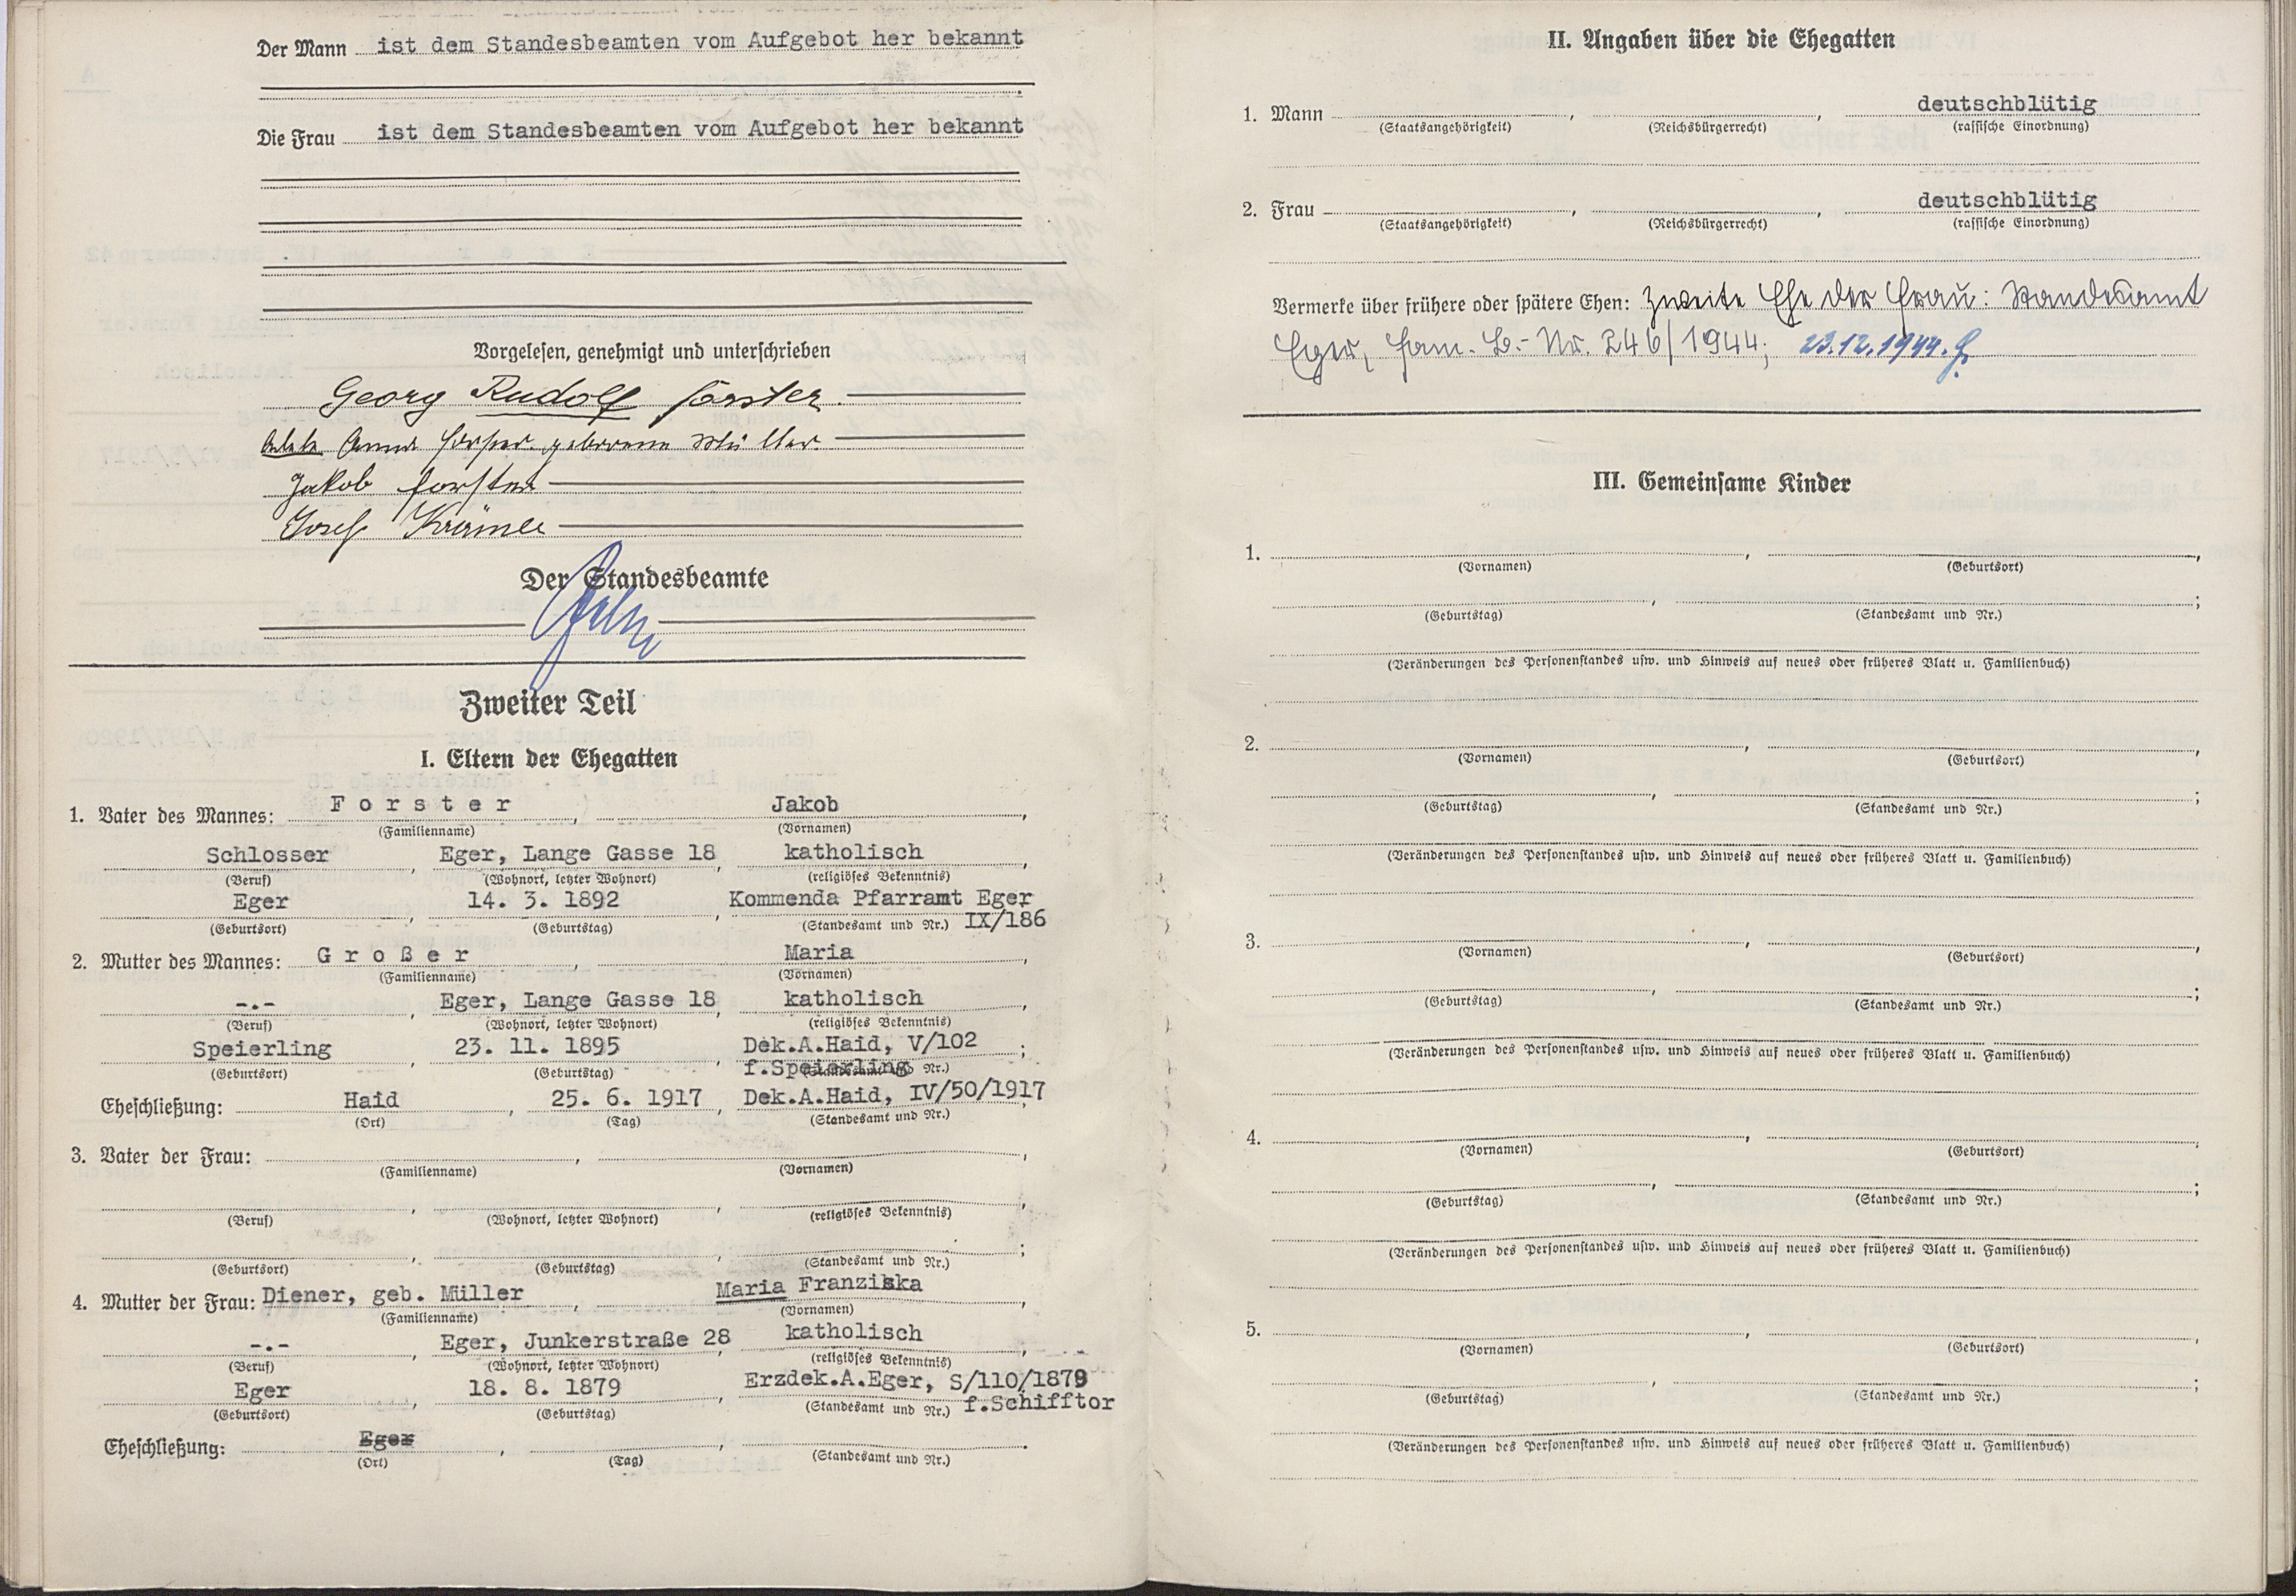 Der Mann ist dem Standesbeamten vom Aufgebot her bekannt
Die Frau ist dem Standesbeamten vom Aufgebot her bekannt
Vorgelesen, genehmigt und unterschrieben
Georg Rudolf Forster
Anna Forster geborene Müller
Jakob Forster
Josef
Der Standesbeamte
Zweiter Teil
I. Eltern der Ehegatten
1. Vater des Mannes: Forster, Jakob,
(Familienname) (Vornamen)
Schlosser, Eger, Lange Gasse 18, katholisch,
(Beruf) (Wohnort, letzter Wohnort) (religiöses Bekenntnis)
Eger, 14. 3. 1892, Kommenda Pfarramt Eger
(Geburtsort) (Geburtstag) (Standesamt und Nr.) IX/186
2. Mutter des Mannes: Großer, Maria,
(Familienname) (Vornamen)
-.-, Eger, Lange Gasse 18, katholisch,
(Beruf) (Wohnort, letzter Wohnort) (religiöses Bekenntnis)
Speierling, 23. 11. 1895, Dek.A.Haid, V/102;
(Geburtsort) (Geburtstag) f.Speierling (Standesamt und Nr.)
Eheschließung: Haid, 25. 6. 1917, Dek.A.Haid, IV/50/1917
(Ort) (Tag) (Standesamt und Nr.)
3. Vater der Frau: , ,
(Familienname) (Vornamen)
(Beruf) (Wohnort, letzter Wohnort) (religiöses Bekenntnis)
(Geburtsort) (Geburtstag) (Standesamt und Nr.)
4. Mutter der Frau: Diener, geb. Müller, Maria Franziska,
(Familienname) (Vornamen)
-.-, Eger, Junkerstraße 28, katholisch,
(Beruf) (Wohnort, letzter Wohnort) (religiöses Bekenntnis)
Eger, 18. 8. 1879, Erzdek.A.Eger, S/110/1879
(Geburtsort) (Geburtstag) (Standesamt und Nr.) f.Schifftor
Eheschließung: Eger, , .
(Ort) (Tag) (Standesamt und Nr.)
II. Angaben über die Ehegatten
1. Mann , , deutschblütig
(Staatsangehörigkeit) (Reichsbürgerrecht) (rassische Einordnung)
2. Frau , , deutschblütig
(Staatsangehörigkeit) (Reichsbürgerrecht) (rassische Einordnung)
Vermerke über frühere oder spätere Ehen: Zweite Ehe der Frau: Standesamt
Eger, Fam. B.- Nr. 246/1944; 23.12.1944.
III. Gemeinsame Kinder
1. , ,
(Vornamen) (Geburtsort)
(Geburtstag) (Standesamt und Nr.)
(Veränderungen des Personenstandes usw. und Hinweis auf neues oder früheres Blatt u. Familienbuch)
2. , ,
(Vornamen) (Geburtsort)
(Geburtstag) (Standesamt und Nr.)
(Veränderungen des Personenstandes usw. und Hinweis auf neues oder früheres Blatt u. Familienbuch)
3. , ,
(Vornamen) (Geburtsort)
(Geburtstag) (Standesamt und Nr.)
(Veränderungen des Personenstandes usw. und Hinweis auf neues oder früheres Blatt u. Familienbuch)
4. , ,
(Vornamen) (Geburtsort)
(Geburtstag) (Standesamt und Nr.)
(Veränderungen des Personenstandes usw. und Hinweis auf neues oder früheres Blatt u. Familienbuch)
5. , ,
(Vornamen) (Geburtsort)
(Geburtstag) (Standesamt und Nr.)
(Veränderungen des Personenstandes usw. und Hinweis auf neues oder früheres Blatt u. Familienbuch)